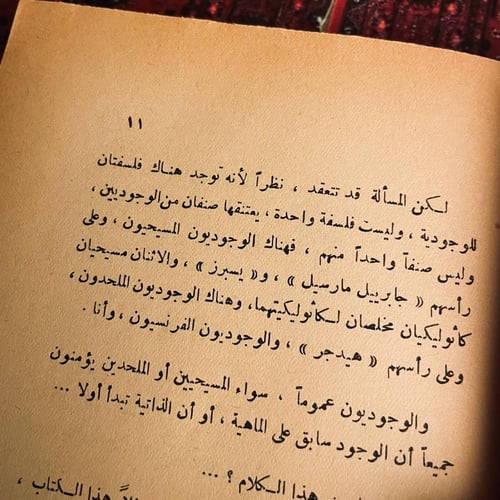 ١١
لكن المسألة قد تتعقد ، نظراً لأنه توجد هناك فلسفتان
للوجودية ، وليست فلسفة واحدة ، يعتنقها صنفان من الوجوديين ،
وليس صنفاً واحداً منهم ، فهناك الوجوديون المسيحيون ، وعلى
رأسهم « جابرييل مارسيل » ، و« يسبرز » ، والاثنان مسيحيان
كاثوليكيان مخلصان لكاثوليكيتهما، وهناك الوجوديون الملحدون ،
وعلى رأسهم « هيدجر » ، والوجوديون الفرنسيون ، وأنا .
والوجوديون عموماً ، سواء المسيحيين أو الملحدين يؤمنون
جميعاً أن الوجود سابق على الماهية ، أو أن الذاتية تبدأ أولا ...
هذا الكلام ؟ ...
هذا الكتاب ،